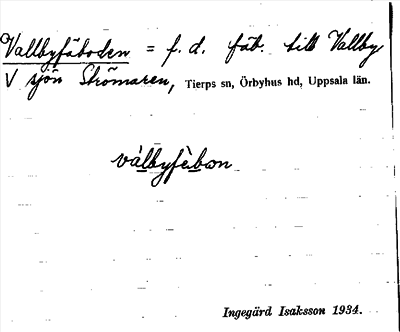 Vallbyfäboden = f. d. fäb. till Vallby
V sjön Strömaren, Tierps sn, Örbyhus hd, Uppsala län.
vàlbyfèbon
Ingegärd Isaksson 1934.